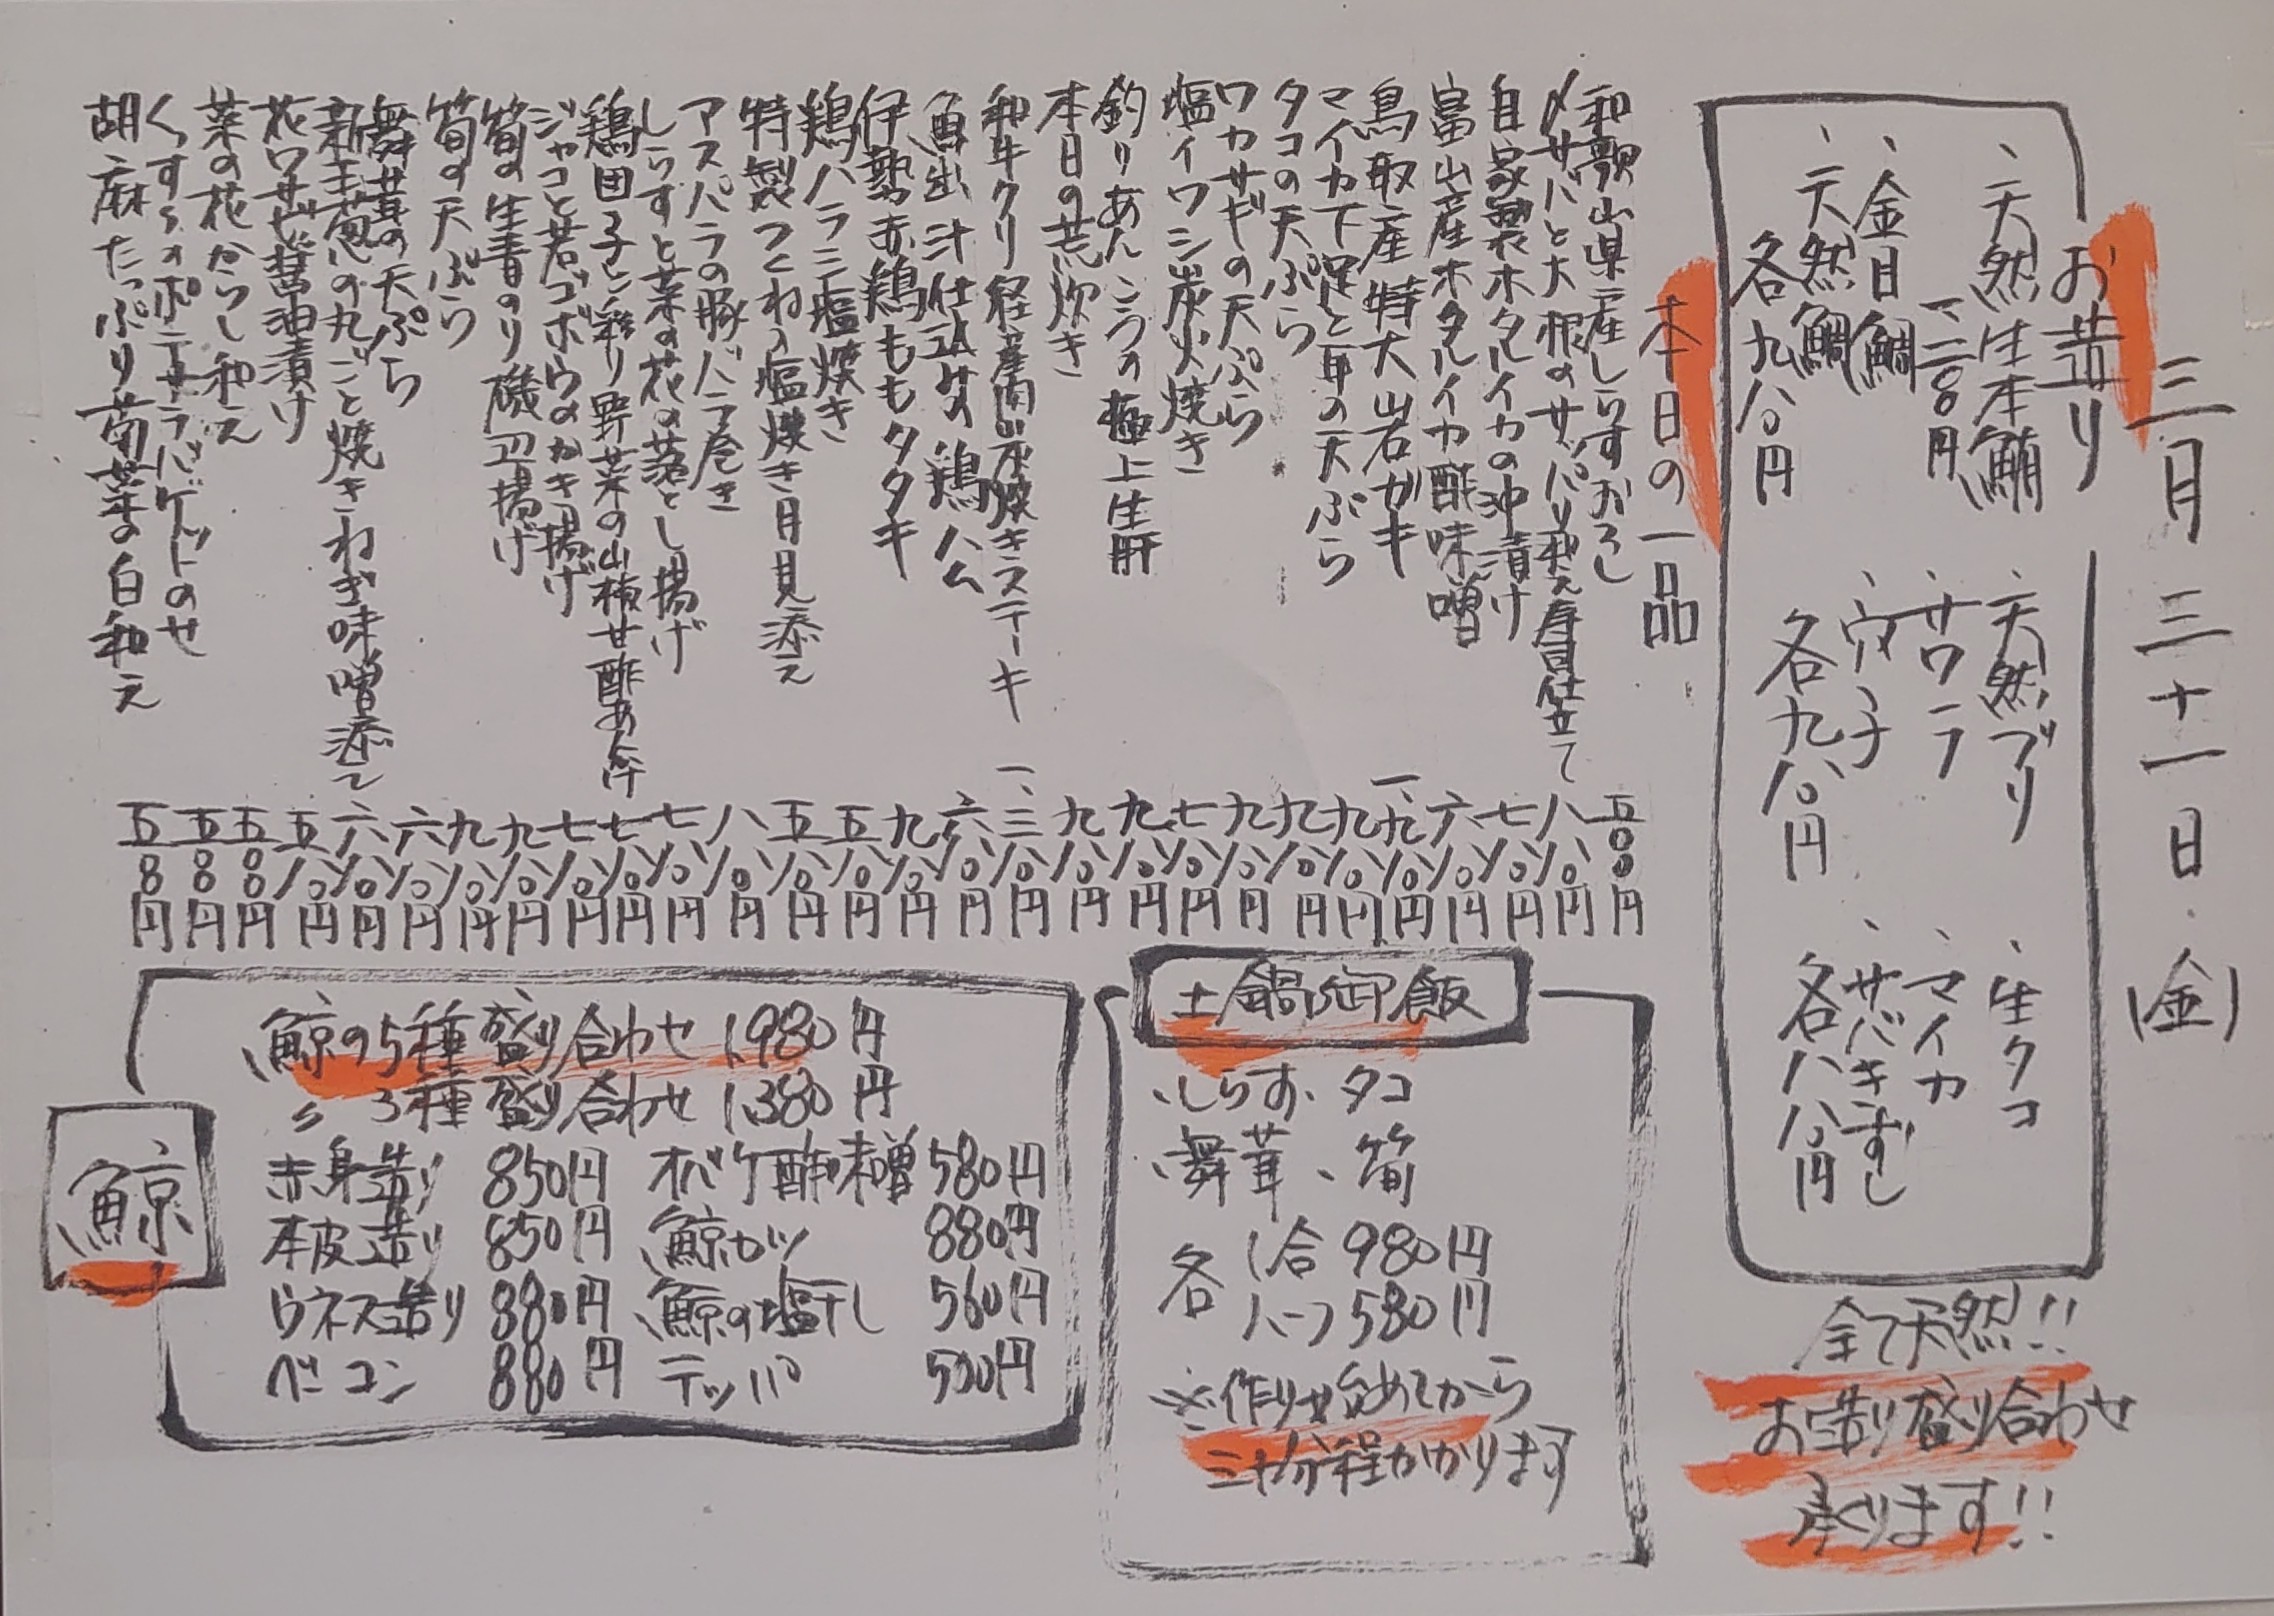 三月三十一日(金)
お造り
、天然生本鮪
一、二八〇円
、金目鯛
、天然鯛
各九八〇円
、天然ブリ
、サワラ
、穴子
各九八〇円
、生タコ
、マイカ
、サバきずし
各八八〇円
全て天然!!
お造り盛り合わせ
承ります!!
本日の一品
和歌山県産しらすおろし 五〇〇円
〆サバと大根のサッパリ和え寿司仕立て 八八〇円
自家製ホタルイカの沖漬け 七八〇円
富山産ホタルイカ酢味噌 六八〇円
鳥取産特大岩ガキ 一、九八〇円
マイカ下足と耳の天ぷら 九八〇円
タコの天ぷら 九八〇円
ワカサギの天ぷら 九八〇円
塩イワシ炭火焼き 七八〇円
釣りあんこうの極上生肝 九八〇円
本日の荒炊き 九八〇円
和牛クリ経産肉炭焼きステーキ 一、三八〇円
魚出汁仕込みの鶏ハム 六八〇円
伊勢赤鶏ももタタキ 九八〇円
鶏ハラミ塩焼き 五八〇円
特製つくね塩焼き月見添え 五八〇円
アスパラの豚バラ巻き 八八〇円
しらすと菜の花の落とし揚げ 七八〇円
鶏団子と彩り野菜の山椒甘酢あん掛け 七八〇円
ジャコと若ゴボウのかき揚げ 七八〇円
筍の生青のり磯辺揚げ 九八〇円
筍の天ぷら 九八〇円
舞茸の天ぷら 六八〇円
新玉葱の丸ごと焼きねぎ味噌添え 六八〇円
花ワサビ醤油漬け 五八〇円
菜の花からし和え 五〇〇円
くずしポテサラバゲットのせ 五〇〇円
胡麻たっぷり菊菜の白和え 五〇〇円
土鍋御飯
、しらす、タコ
、舞茸、筍
各 1合 980円
ハーフ 580円
※作り始めてから
三十分程かかります
鯨
鯨の5種盛り合わせ 1,980円
〃 3種盛り合わせ 1,380円
赤身造り 850円 オバケ酢味噌 580円
本皮造り 850円 鯨カツ 880円
ウネス造り 880円 鯨の塩干し 560円
ベーコン 880円 テッパ 500円